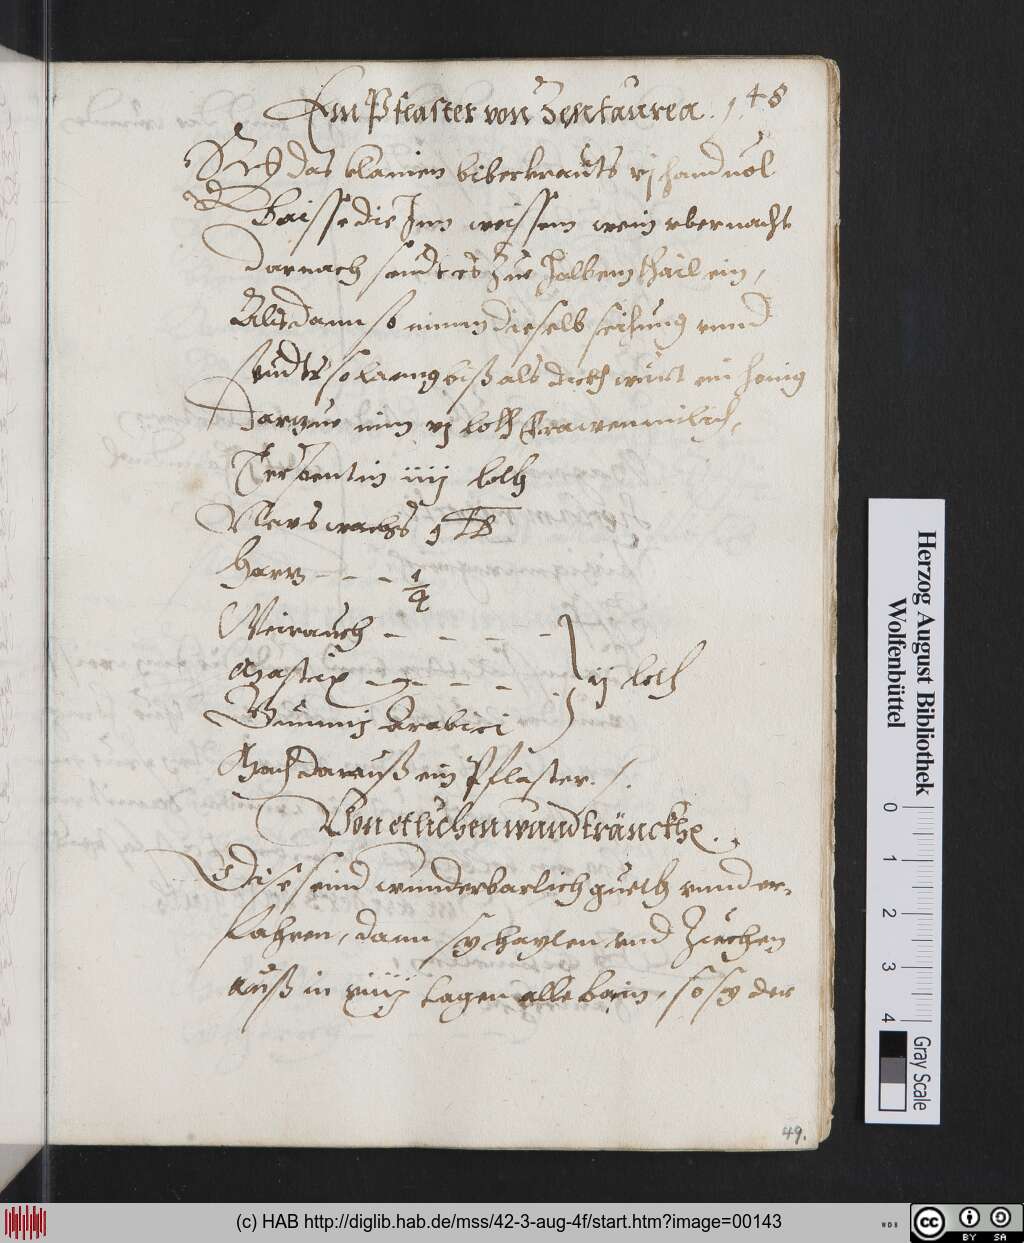 Ein Pflaster von Zentaurea. 48
Rp das klainen biberkrauts vj handuol
Baisse die Inn weissem wein vbernacht
darnach seudt es Zue halbem thail ein,
Alsdann so nimm dieselb seihung vnnd
seudts so lanng biß als dickh wurt ein honig
Darzue nim vj loth frawenmilch,
Terpentin iiij loth
News wachs j ℔
Hartz - - - 1/4
Weirauch - - - -
Mastix - - - - ij loth
Gummj Arabici
Mach darauß ein Pflaster ./.
Von etlichen wundträncken.
Dise seind wunderbarlich gueth vnnd er-
fahren, dann sy haylen vnd Ziechen
auß in viiij tagen alle bain, so sy der
49.
Herzog August Bibliothek
Wolfenbüttel
0 1 2 3 4
Gray Scale
(c) HAB http://diglib.hab.de/mss/42-3-aug-4f/start.htm?image=00143
WDB
CC BY SA